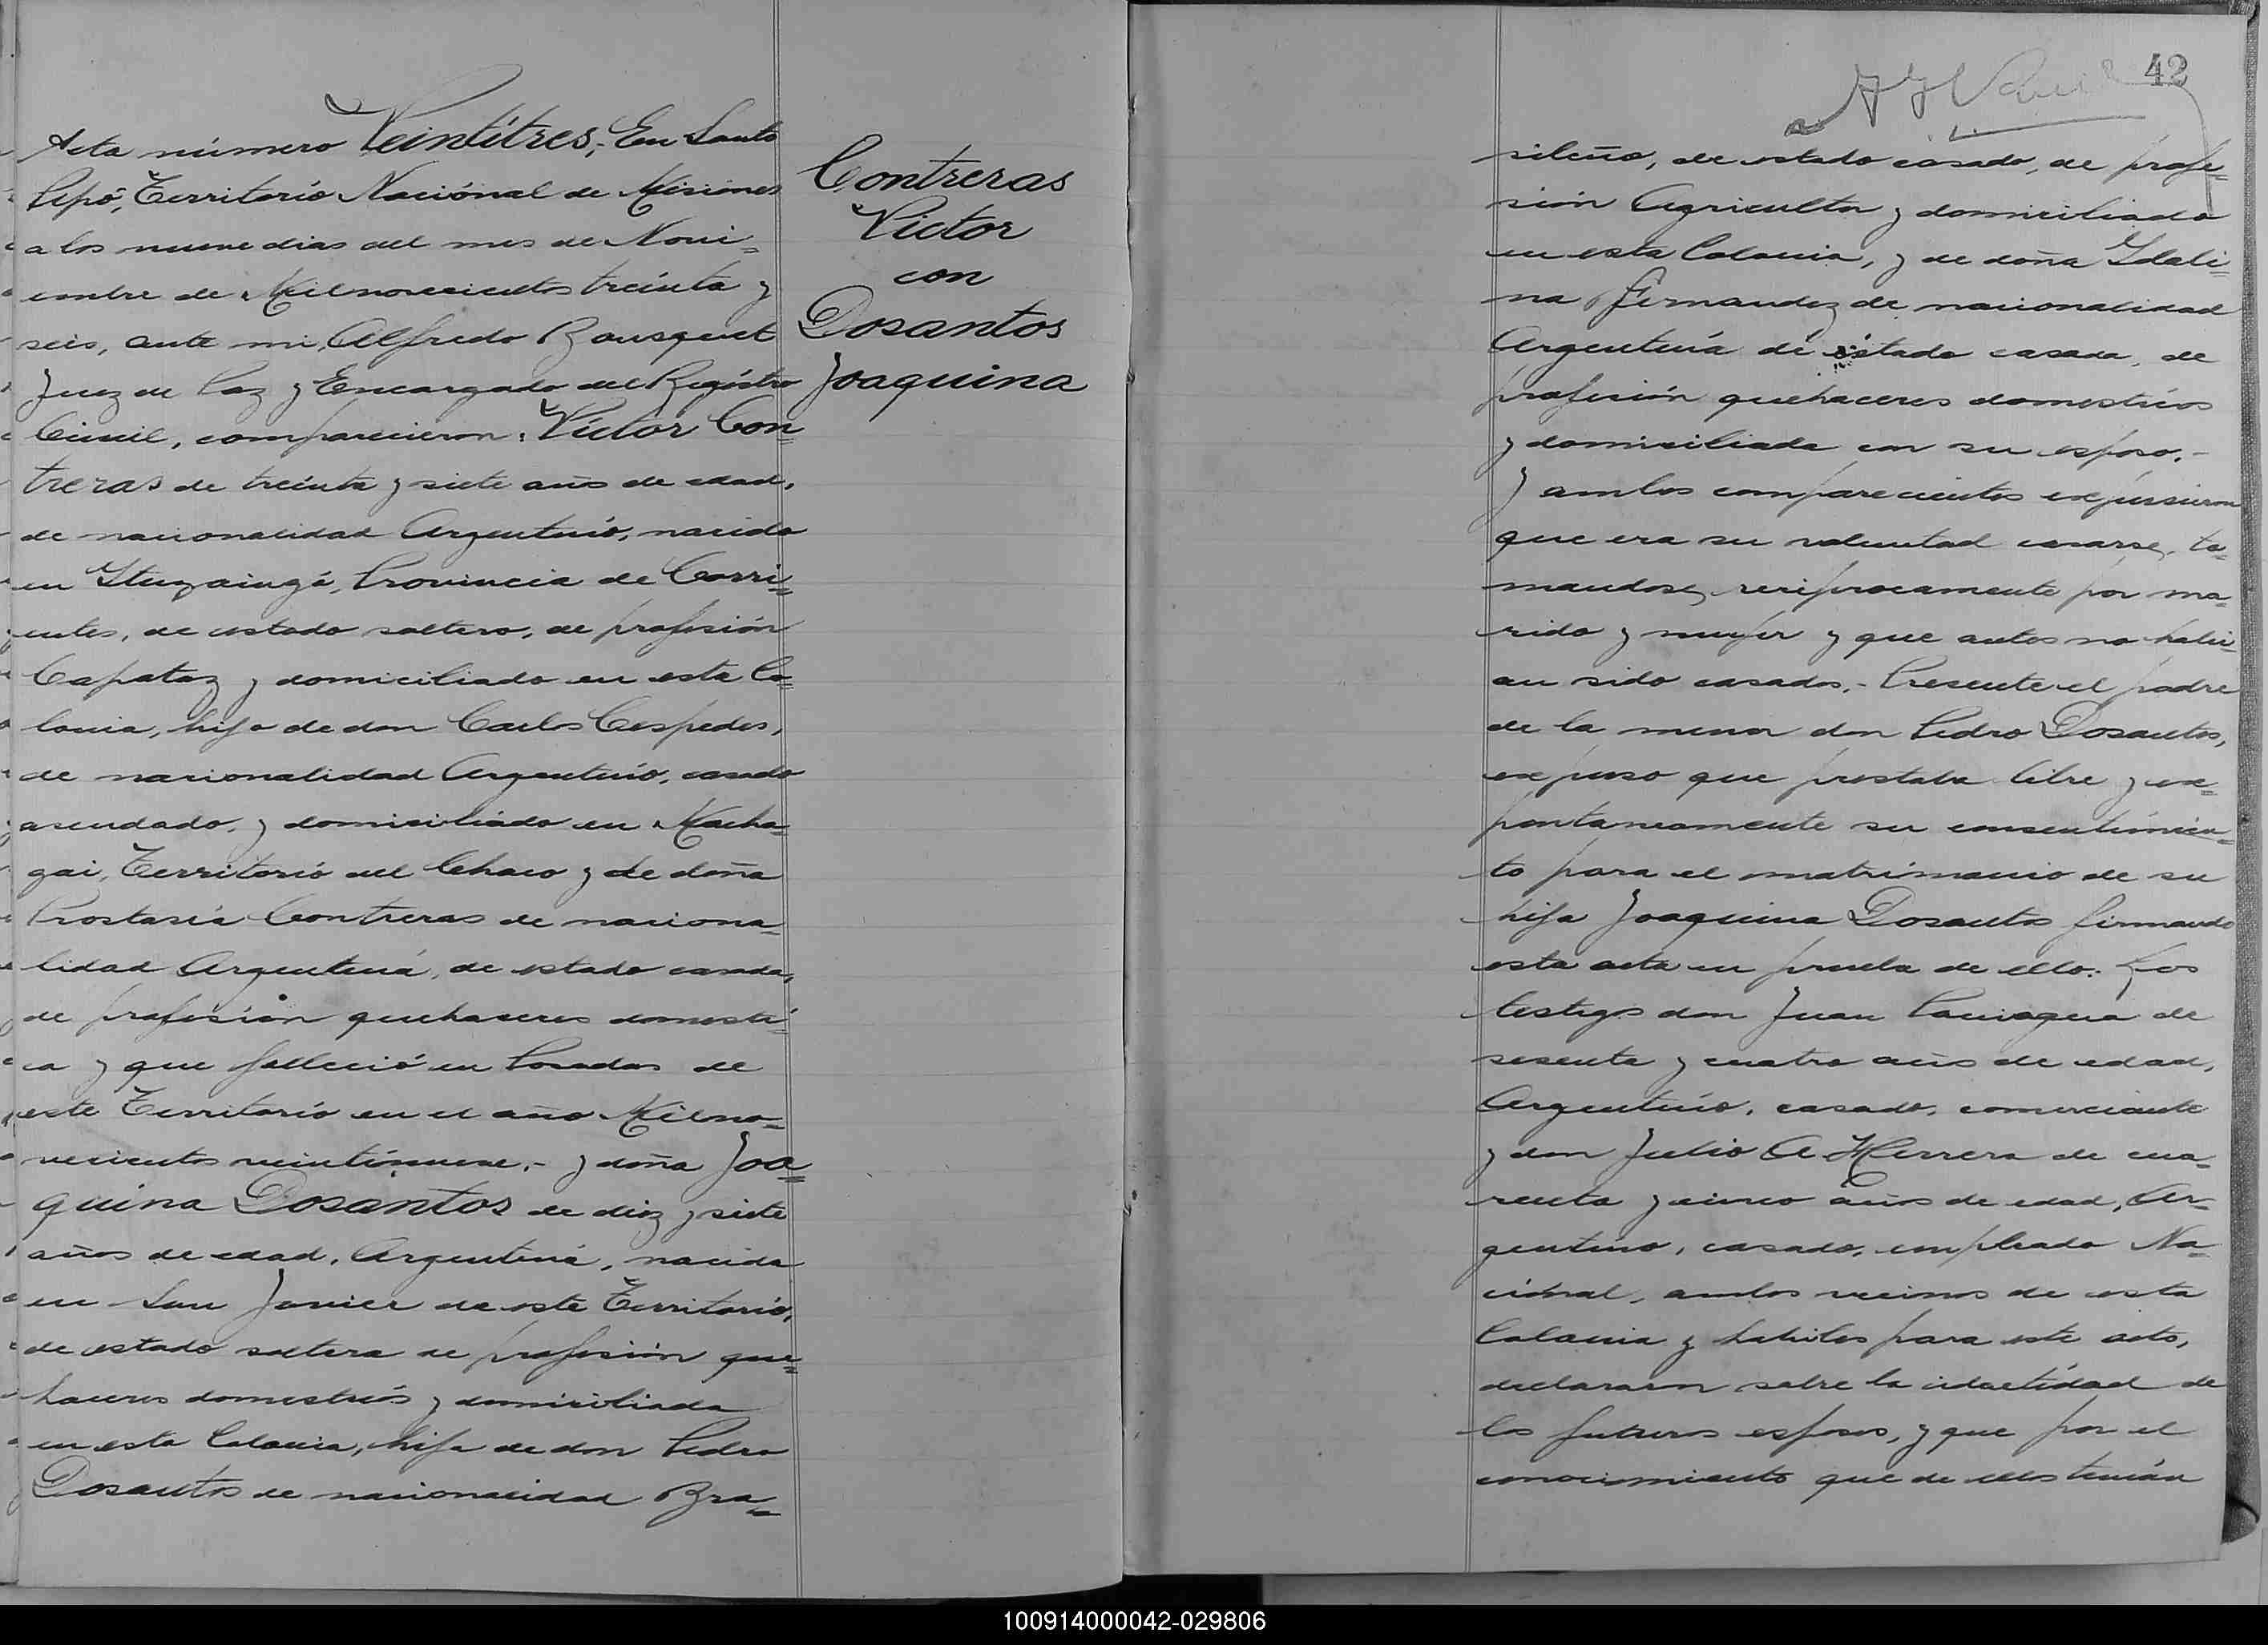 Acta número Veintitres,- En Santo
Pipó, Territorio Naciónal de Misiones
a los nueve dias del mes de Novi=
embre de Milnovecientos treinta y
seis, ante mi, Alfredo Bousquet
Juez de Paz y Encargado del Registro
Civil, comparecieron: Victor Con=
treras de treinta y siete años de edad,
de nacionalidad Argentino, nacido
en Ituzaingó, Provincia de Corri=
entes, de estado soltero, de profesión
Capataz y domiciliado en esta Co=
lonia, hijo de don Carlos Cespedes,
de nacionalidad Argentino, casado
asendado, y domiciliado en Macha=
gai, Territorio del Chaco y de doña
Prostasia Contreras de naciona=
lidad Argentina, de estado casada,
de profesión quehaceres domesti=
ca y que falleció en Posadas de
este Territorio en el año Milno=
vecientos veintinueve.- y doña Joa=
quina Dosantos de diez y siete
años de edad, Argentina, nacida
en San Javier de este Territorio,
de estado soltera de profesión que=
haceres domesticos y domiciliada
en esta Colonia, hija de don Pedro
Dosantos de nacionalidad Bra=
Contreras
Victor
con
Dosantos
Joaquina
42
sileño, de estado casado, de profe=
sión Agricultor y domiciliado
en esta Colonia, y de doña Idali=
na Fernandez de nacionalidad
Argentina de estado casada, de
profesión quehaceres domesticos
y domiciliada con su esposo.-
Y ambos comparecientes expusieron
que era su voluntad casarse, to=
mandose reciprocamente por ma=
rido y mujer y que antes no habi=
an sido casados.- Presente el padre
de la menor don Pedro Dosantos,
expuso que prestaba libre y ex=
pontaneamente su consentimien=
to para el matrimonio de su
hija Joaquina Dosantos firmando
esta acta en prueba de ello. Los
testigos don Juan Paniagua de
sesenta y cuatro años de edad,
Argentino, casado, comerciante
y don Julio A Herrera de cua=
renta y cinco años de edad, Ar=
gentino, casado, empleado Na=
cional, ambos vecinos de esta
Colonia y habiles para este acto,
declararon sobre la identidad de
los futuros esposos, y que por el
conocimiento que de ellos tenián
100914000042-029806